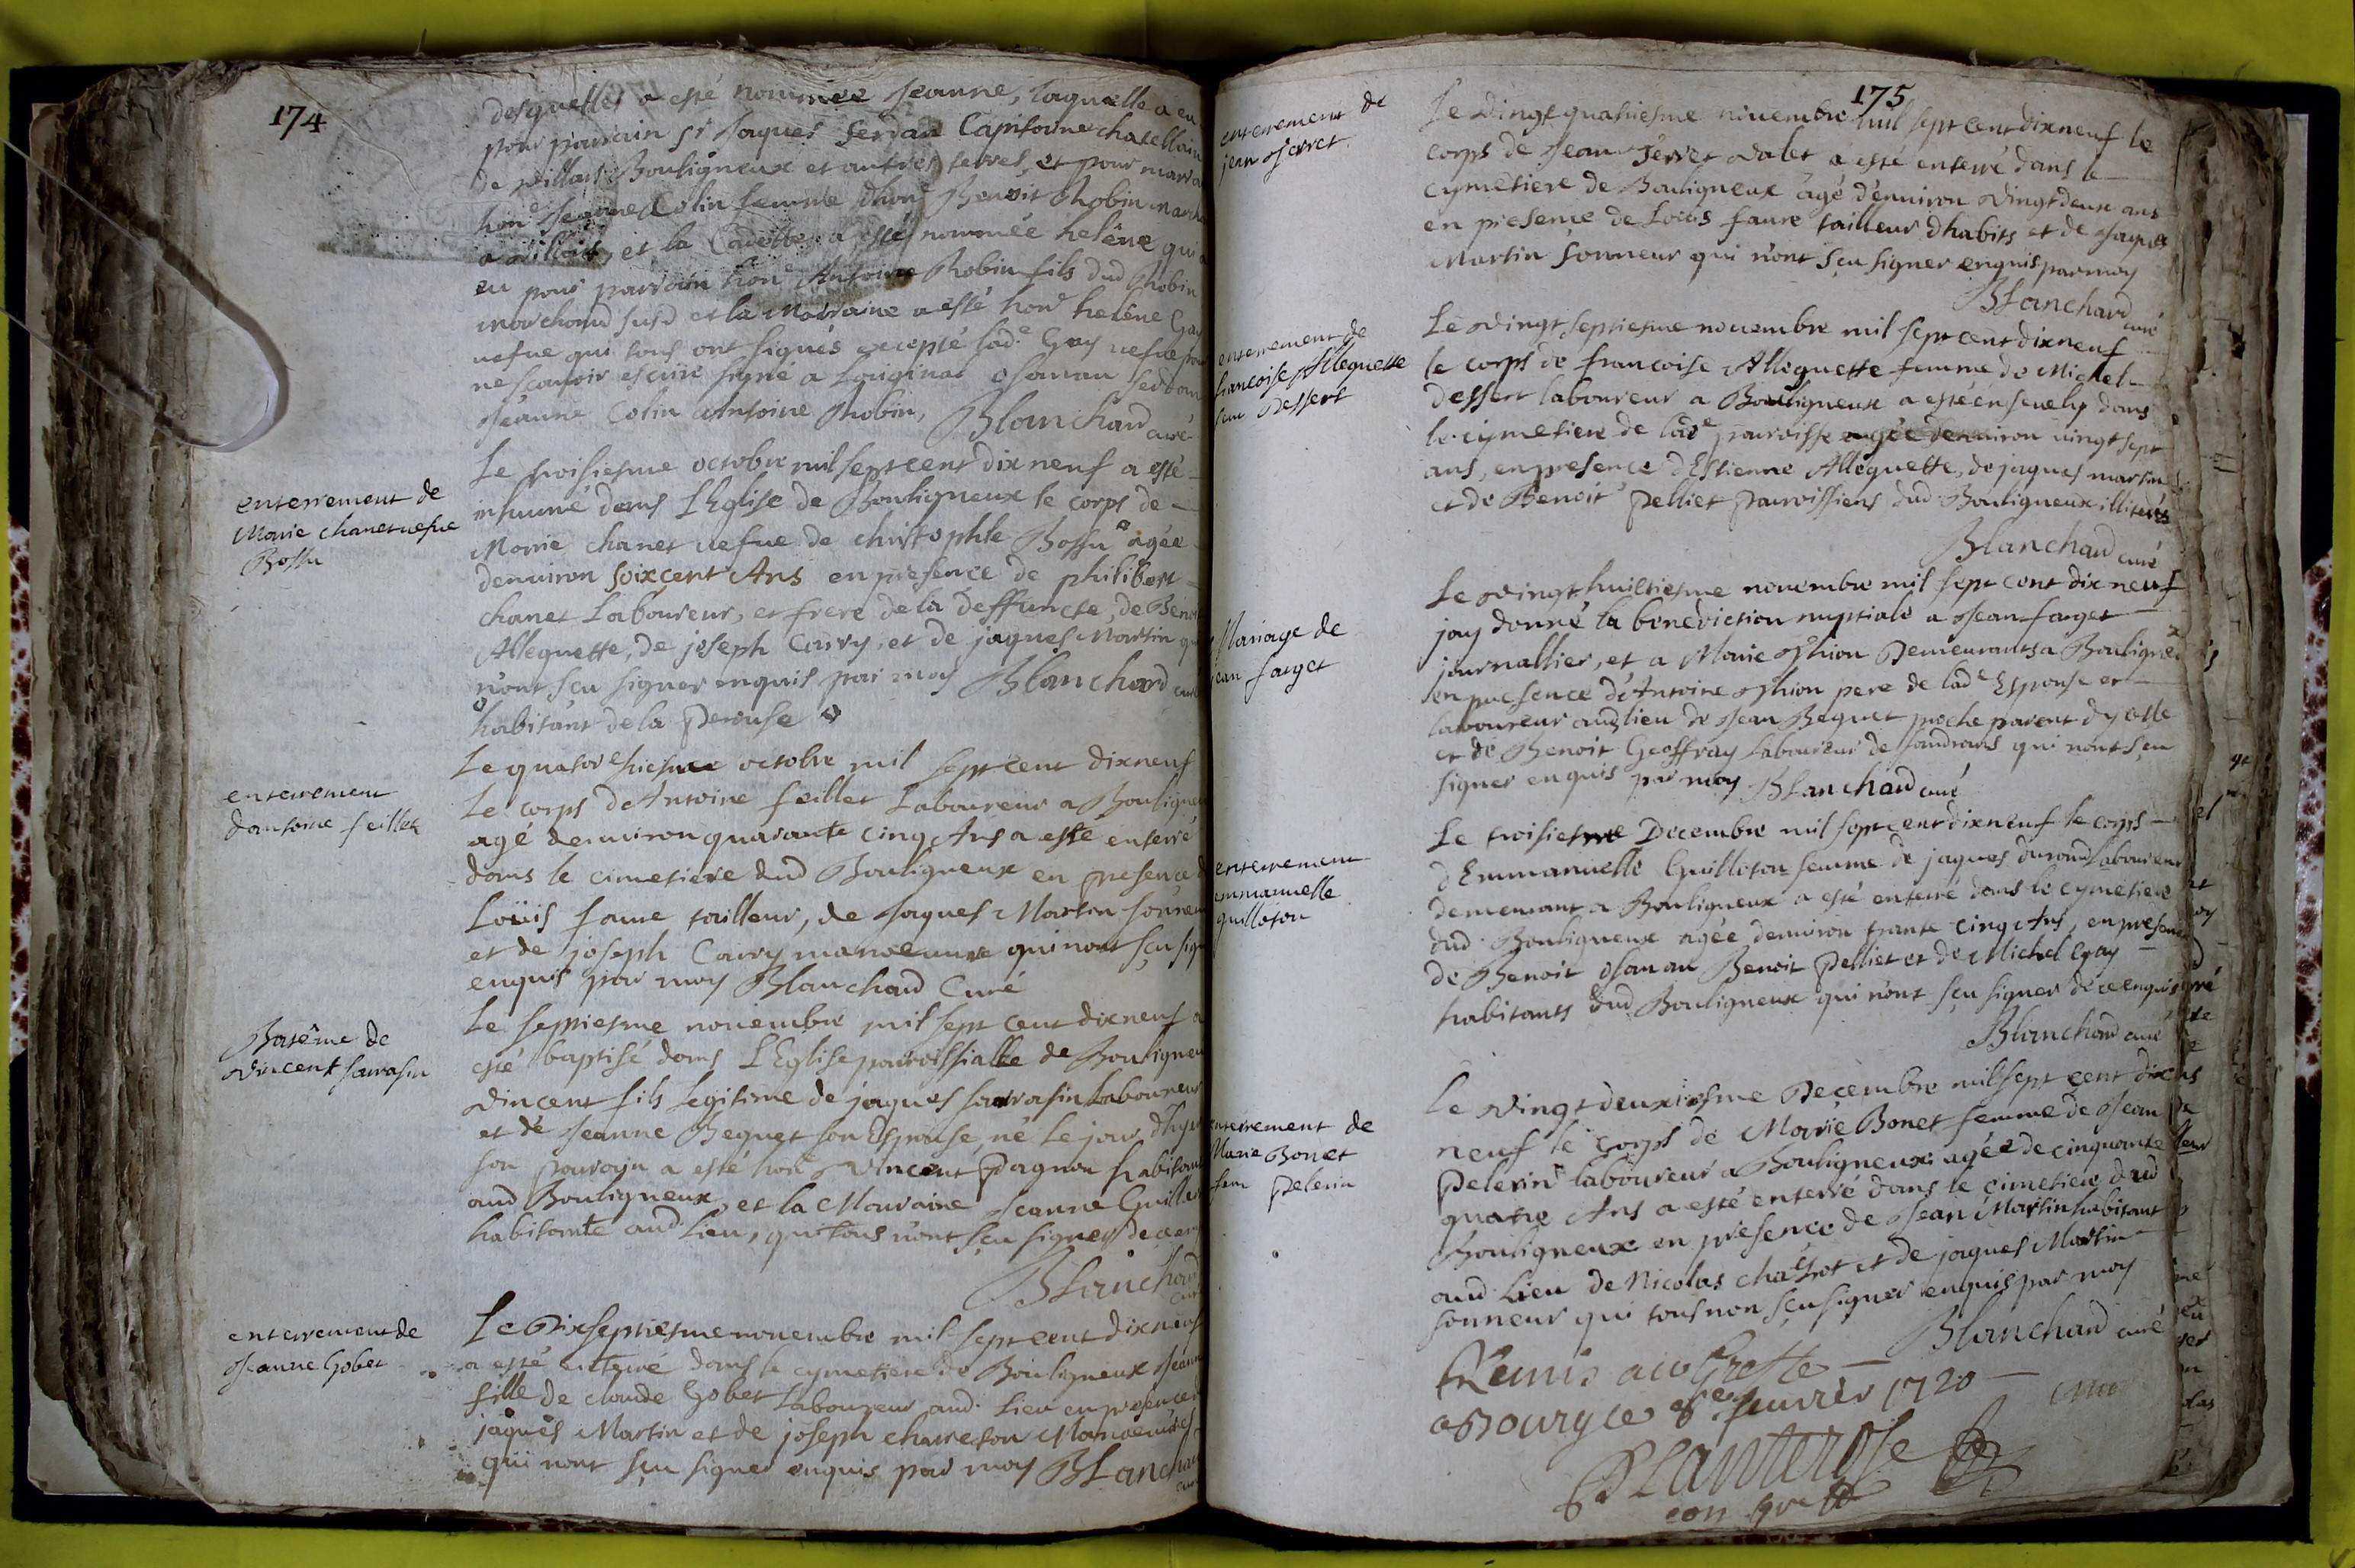 174
desquelles a esté nommée Jeanne, laquelle a eu
pour parrain sr Jaques Capitaine chatellain
de villars Bouligneux et autres terres, et pour marra
hone Jeanne Colin femme dhone Benoit Robin march
a villars, et la Cadette a esté nommée helêne qui a
eu pour parrain hone Antoine Robin fils dud Robin
marchand susd et la Marraine a esté hone helêne Gay
vefue qui tous ont signés excepté lade Gay vefue pour
ne scauoir escrire signé a Loriginal Janan
Jeanne Colin Antoine Robin, Blanchard curé
enterrement de
Marie chanet vefue
Bossu
Le troisiesme octobre mil sept cent dix neuf a esté
inhumé dans L'Eglise de Bouligneux le corps de
Marie chanet vefue de christophle Bossu agée
denuiron soixcent Ans en presence de philibert
chanet Laboureur, et frere de la deffuncte, de Benoi
Alleguette, de joseph Cavry, et de jaques Martin qu
n'ont sçu signer enquis par moy Blanchard curé
habitant de la Perouse
enterrement
dantoine feillet
Le quatorshiesme octobre mil sept cent dixneuf
Le corps dAntoine feillet Laboureur a Bouligneu
agé denuiron quarante cinq Ans a esté enterré
dans le cimetiere dud Bouligneux en presence d
Loüis faure tailleur, de Jaques Martin sonneu
et de joseph Cavry manoeuure qui nont sçu sign
enquis par moy Blanchard Curé
Batême de
vincent sarrasin
Le septiesme nouembre mil sept cent dixneuf a
esté baptisé dans L'Eglise parroissialle de Bouligneu
vincent fils Legitime de jaques sarrasin Laboureur
et de Jeanne Beguet son Espouse né Le jour dhyer
son parrain a esté hone vincent Pagnon habitant
aud Bouligneux, et la Marraine Jeanne Guillet
habitante aud. Lieu, qui tous n'ont sçu signer de ce en
Blanchard
curé
enterrement de
Jeanne Gobet
Le Dixseptiesme nouembre mil sept cent dixneuf
a esté enterré dans le cymetiere de Bouligneux Jeanne
fille de claude Gobet Laboureur aud. Lieu en presence d
jaques Martin et de joseph chareton Manoeuures
qui nont sçu signer enquis par moy Blanchar
175
enterrement de
jean Jerret
Le vingt quatriesme nouembre mil sept cent dixneuf le
corps de Jean Jerret valet a esté enterré dans le
cymetiere de Bouligneux agé d'enuiron vingt deux ans
en presence de Loüis faure tailleur dhabits et de Jaques
Martin sonneur qui n'ont sçu signer enquis par moy
Blanchard curé
enterrement de
francoise Alleguette
fem Dessert
Le vingt septiesme nouembre mil sept cent dixneuf
le corps de francoise Alleguette femme de Michel
dessert laboureur a Bouligneux a esté enseuely dans
le cymetiere de lade parroisse agée denuiron vingt sept
ans, en presence d'Estienne Alleguette, de jaques martin
et de Benoit Pelliet parroissiens dud Bouligneux illiterés
Blanchard curé
Mariage de
jean farget
Le vingt huiltiesme nouembre mil sept cent dix neuf
jay donné la benediction nuptiale a Jean farget
journallier, et a Marie Thion Demeurants a Bouligneux
en presence d'Antoine Thion pere de lade Espouse et
laboureur aud lieu de Jean Beguet proche parent dycelle
et de Benoit Geoffray Laboureur de sandrans qui nont sçu
signer enquis par moy Blanchard curé
enterrement
emmanuelle
guilloton
Le troisiesme Decembre mil sept cent dixneuf le corps
d'Emmanuelle Guilloton femme de jaques durand Laboureur
demeurant a Bouligneux a esté enterré dans le cymetiere
dud Bouligneux agée denuiron trante cinq Ans, en presence
de Benoit Janan Benoit Pelliet et de Michel Gay
habitants dud Bouligneux qui n'ont sçu signer de ce enquis
Blanchard curé
enterrement de
Marie Bonet
fem Pelerin
Le vingt deuxiesme Decembre mil sept cent dix
neuf le corps de Marie Bonet femme de Jean
Pelerin laboureur a Bouligneux agée de cinquante
quatre Ans a esté enterré dans le cimetiere dud
Bouligneux en presence de Jean Martin habitant
aud Lieu de Nicolas chatret et de jaques Martin
sonneur qui tous non sçu signer enquis par moy
Blanchard curé
Remis au Greffe
a Bourg le 8e feurier 1720
Planterose